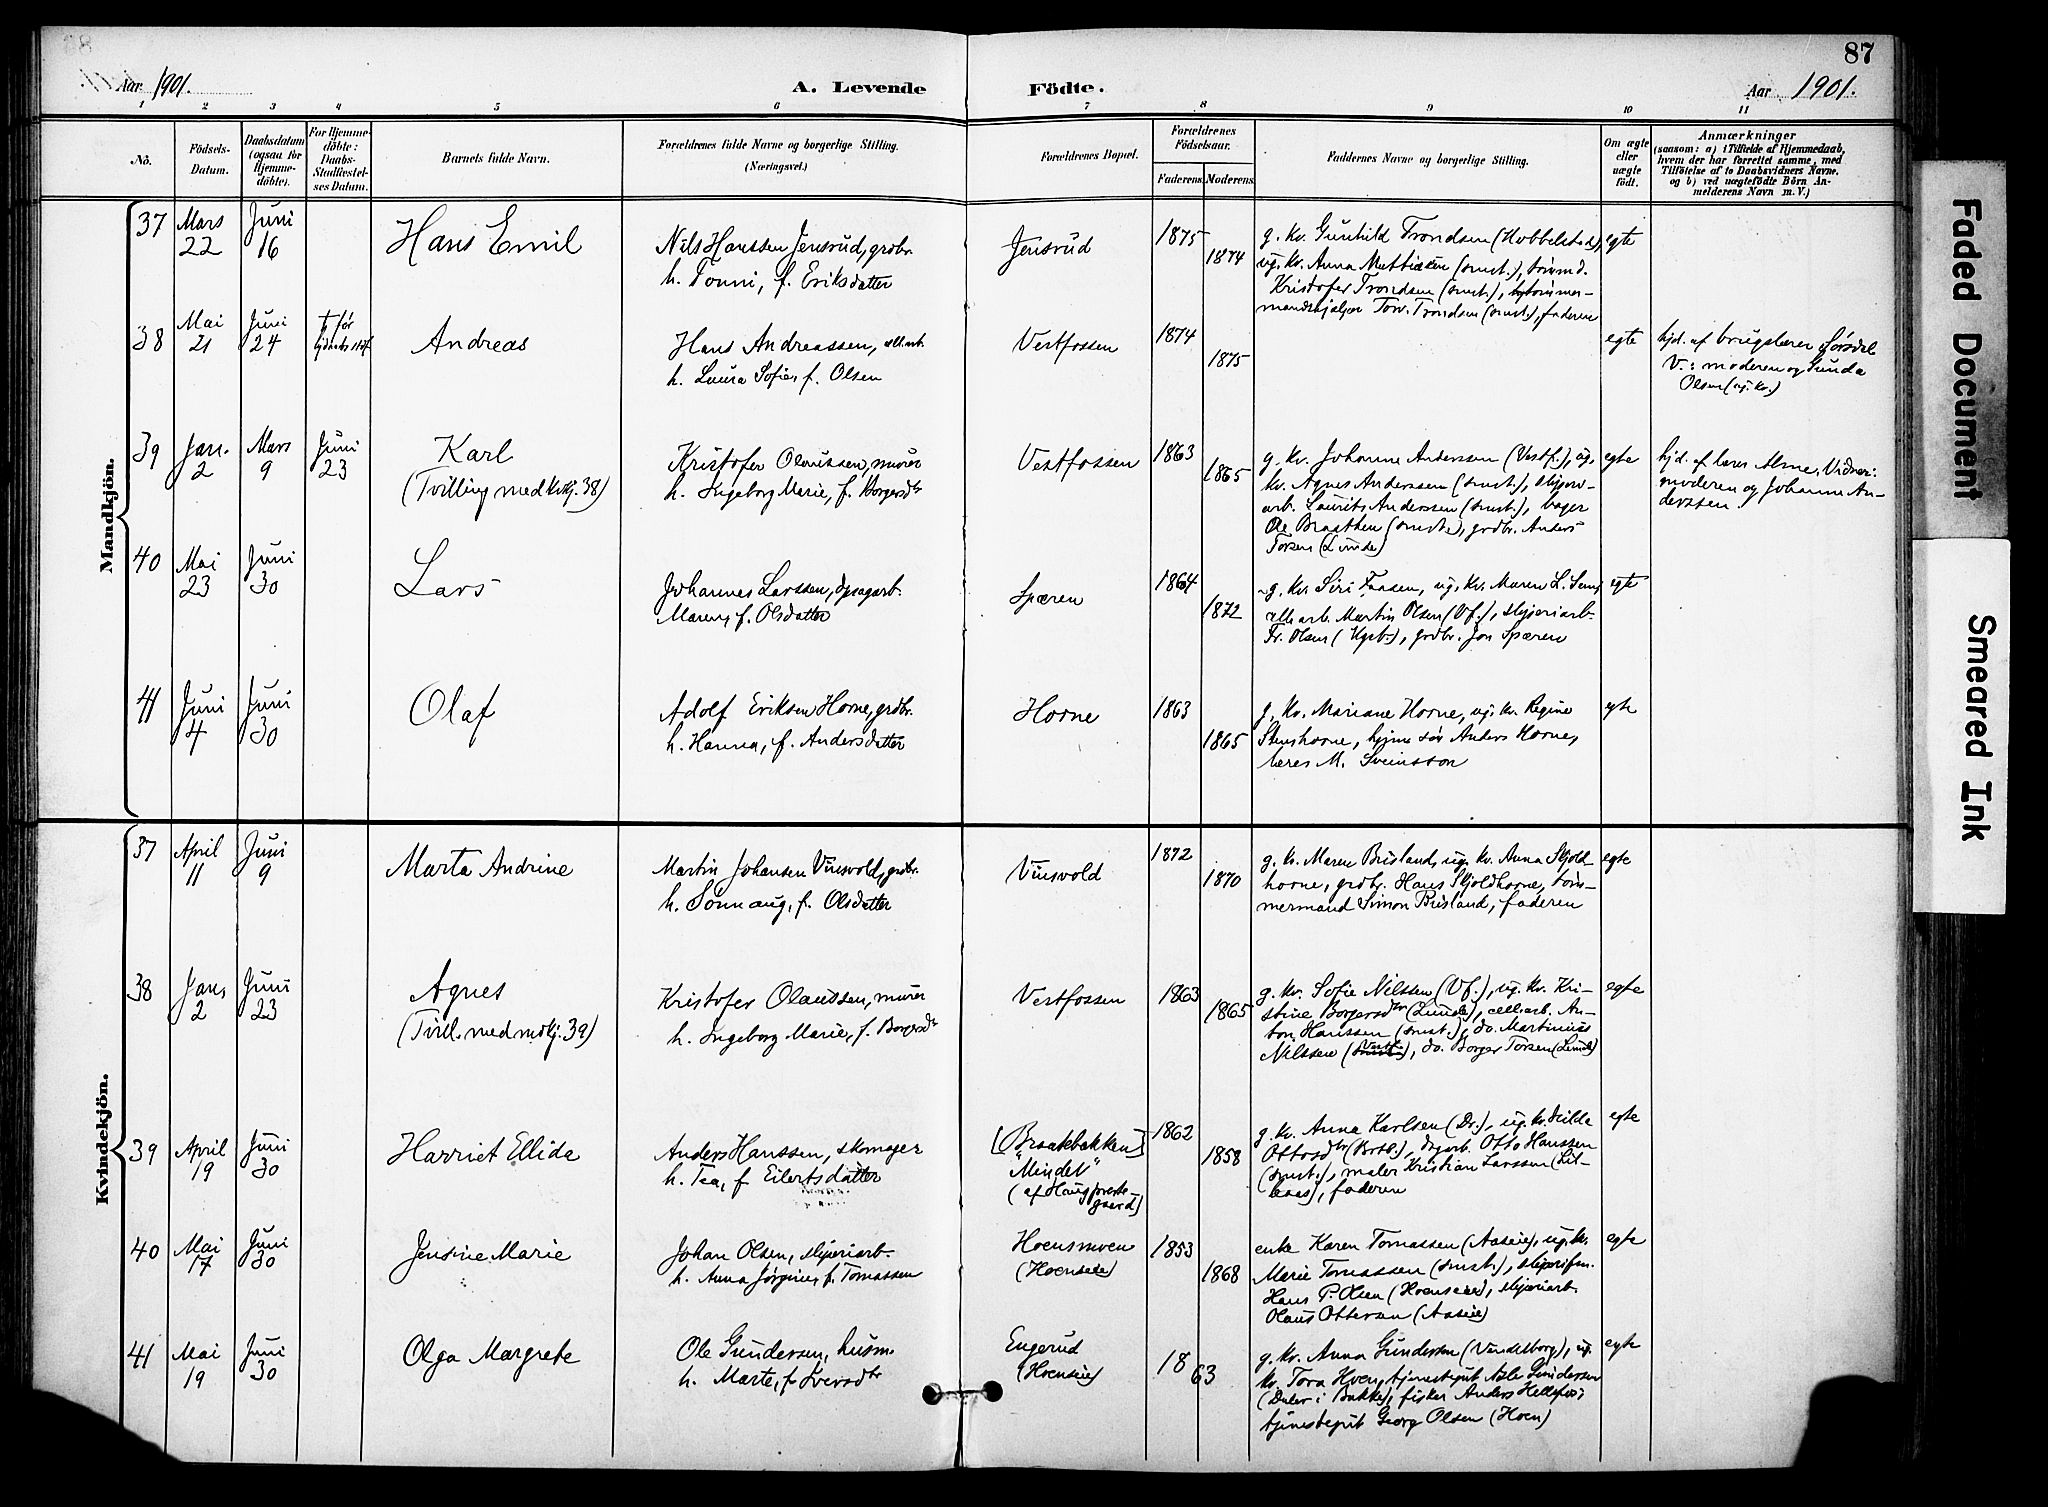 87
Aar 1901.
A. Levende Födte.
Aar 1901.
1 2 3 4 5 6 7 8 9 10 11
No.
Födsels-
Datum.
Daabsdatum
(ogsaa for
Hjemme-
döbte).
For Hjemme-
döbte:
Daabs-
Stadfæstel-
ses Datum.
Barnets fulde Navn.
Forældrenes fulde Navne og borgerlige Stilling.
(Næringsvei.)
Forældrenes Bopæl.
Forældrenes
Födselsaar.
Faderens. Moderens.
Faddernes Navne og borgerlige Stilling.
Om ægte
eller
uægte
födt.
Anmærkninger
(saasom: a) i Tilfælde af Hjemmedaab,
hvem der har forrettet samme, med
Tilföielse af to Daabsvidners Navne.
og b) ved uægtefödte Börn An-
melderens Navn m. V.)
Mandkjön.
37
Mars
22
Juni
16
Hans Emil
Nils Hanssen Jensrud, grdbr.
h. Tonni, f. Eriksdatter
Jensrud
1875
1874
g. kv. Gunhild Trondsen (Hobbelstad),
ug. kv. Anna Mattiesen (smst.), tømmd.
Kristofer Trondsen (smst.), tømmer-
mandshjælper Torv. Trondsen (smst.), faderen
egte
38
Mai
21
Juni
24
† før
Andreas
Hans Andreassen, cell.arb.
h. Laura Sofie, f. Olsen
Vestfossen
1874
1875
egte
hjd. af brugslærer Sørsdal
V.: moderen og Gunda
Olsen (ug. kv.)
39
Jan.
2
Mars
9
Juni
23
Karl
(Tvilling med kvkj. 38)
Kristofer Olaussen, murer
h. Ingeborg Marie, f. Borgersdtr
Vestfossen
1863
1865
g. kv. Johanne Anderssen (Vestf.), ug.
kv. Agnes Anderssen (smst.), sliperi-
arb. Laurits Anderssen (smst.), bager
Ole Braathen (smst.), grdbr. Anders
Torsen (Lunde)
egte
hjd. af lærer Alme. Vidner:
moderen og Johanne An-
derssen.
40
Mai
23
Juni
30
Lars
Johannes Larssen, dpsagarb.
Maren, f. Olsdatter
Spæren
1864
1872
g. kv. Siri Faasen, ug. kv. Maren L.
cell.arb. Martin Olsen (Vf.), sliperiarb.
Fr. Olsen, grdbr. Jon Spæren
egte
41
Juni
4
Juni
30
Olaf
Adolf Eriksen Horne, grdbr.
h. Hanna, f. Andersdatter
Horne
1863
1865
g. kv. Mariane Horne, ug. kv. Regine
Stenshorne, hjme søn Anders Horne,
lærer M. Sveinsson
egte
Kvindekjön.
37
April
11
Juni
9
Marta Andrine
Martin Johansen Vinsvold, grdbr.
h. Sønnaug, f. Olsdatter
Vinsvold
1872
1870
g. kv. Maren Brisland, ug. kv. Anna Skjold-
horne, grdbr. Hans Skjoldhorne, tøm-
mermand Simon Brisland, faderen
egte
38
Jan.
2
Juni
23
Agnes
(Tvill. med mdkj. 39)
Kristofer Olaussen, murer
h. Ingeborg Marie, f. Borgersdtr
Vestfossen
1863
1865
g. kv. Sofie Nilssen (Vf.), ug. kv. Kri-
stine Borgersdtr (Lunde), cell.arb. An-
ton Hanssen (smst.), do. Martinius
Nilssen (Vestf.), do. Borger Torsen (Lunde)
egte
39
April
19
Juni
30
Harriet Ellida
Anders Hanssen, skomager
h. Tea, f. Eilertsdatter
[Braatebakken]
"Mindet"
(af Haug preste-
gaard)
1862
1858
g. kv. Anna Karlsen (Dr.), ug. kv. Hilda
Ottosdtr, dagarb. Otto Hanssen
(smst.), maler Kristian Larssen (Lil-
laas), faderen
egte
40
Mai
17
Juni
30
Jensine Marie
Johan Olsen, sliperiarb.
h. Anna Jørgine, f. Tomassen
Hoensmoen
(Hoenseie)
1853
1868
enke Karen Tomassen (Aaseie), ug. kv.
Marie Tomassen (smst.), sliperifm.
Hans P. Olsen (Hoenseie), sliperiarb.
Olaus Ottersen (Aaseie)
egte
41
Mai
19
Juni
30
Olga Margrete
Ole Gundersen, husm.
h. Marte, f. Iversdtr
Engerud
(Hoenseie)
1863
g. kv. Anna Gundersen (Vendelborg), ug.
kv. Tora Hoen, tjenestepike Asle Gundersen
(Daler i Bakke), fisker Anders Hellefos,
tjenestegut Georg Olsen (Hoen)
egte
Faded Document
Smeared Ink